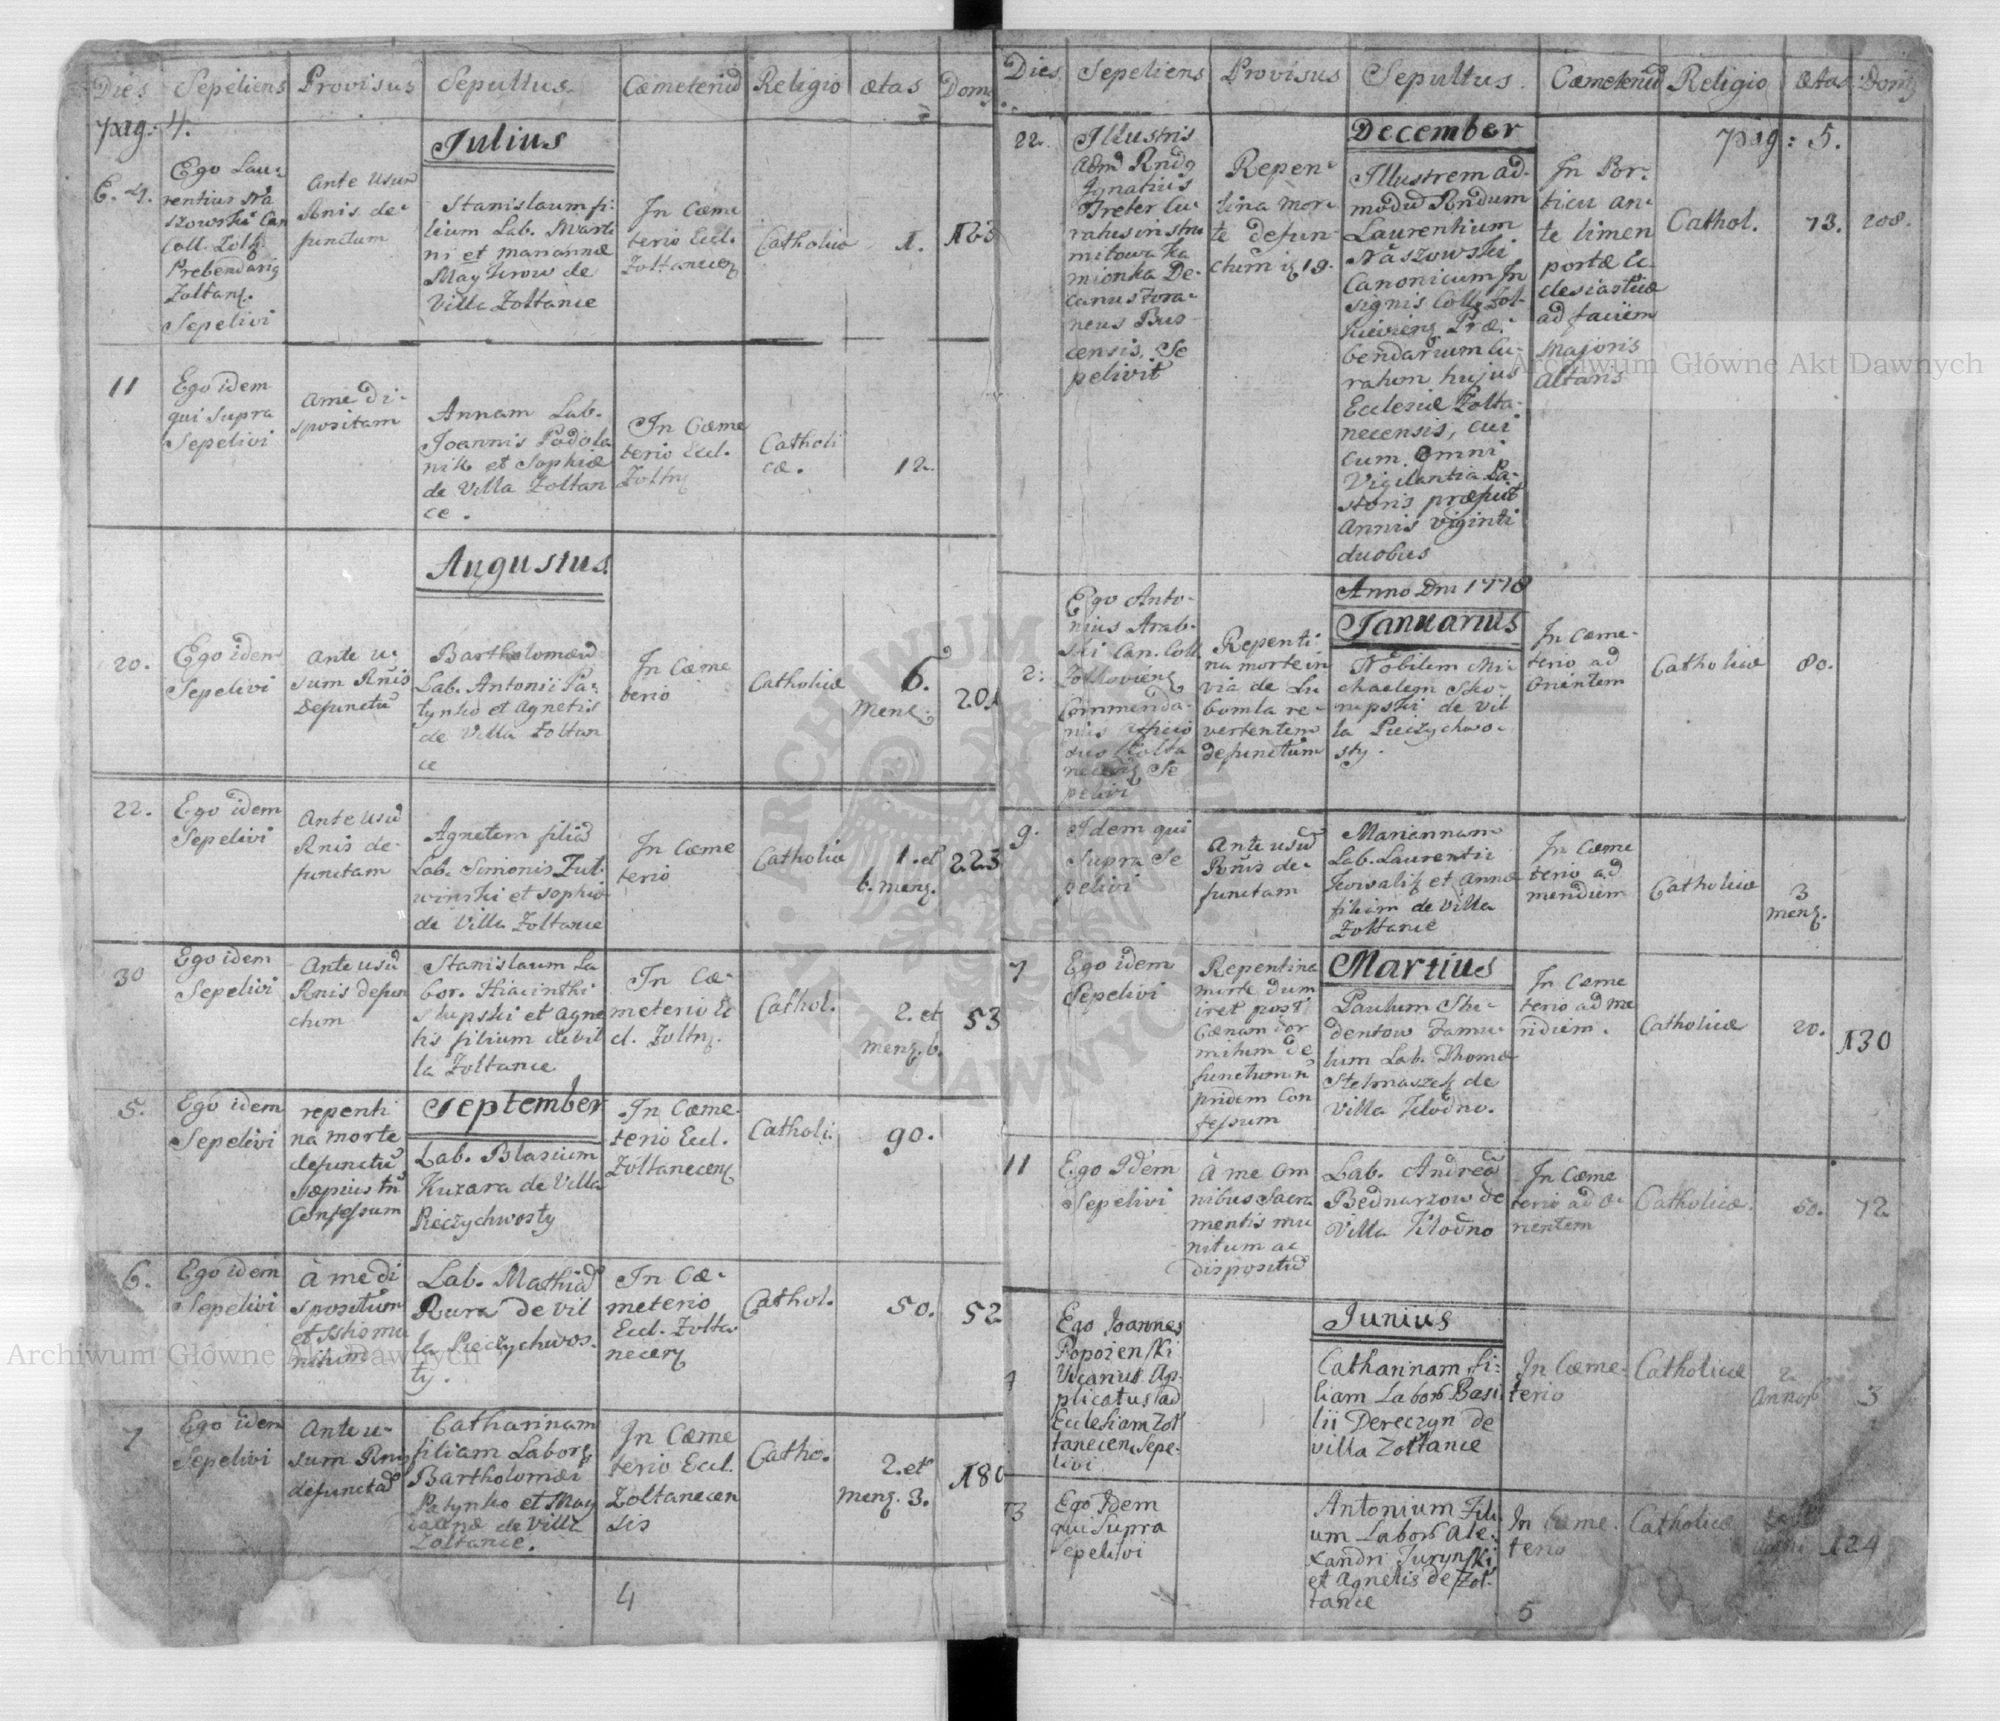 Dies Sepeliens Provisus Sepultus Cæmeteriũ Religio ætas Dom9
pag: 4.
Julius
6. 4.
Ego Lau-
rentius Na
szowski Can
Coll. Zolk
Prebendariq
Zoltanc.
Sepelivi
Ante usum
Rnis de-
functum
Stanislaum fi-
lium Lab. Marti
ni et Mariannæ
May
de
Villa Zoltance
In Cæme
terio Eccl.
Zoltanecen
Catholicæ
1.
123
11
Ego idem
qui supra
Sepelivi
a me di-
spositam
Annam Lab.
Joannis Podola
nik et Sophiæ
de Villa Zoltan
ce.
In Cæme
terio Eccl.
Zoltn
Catholi
cæ.
12.
Augustus
20.
Ego idem
Sepelivi
Ante u-
sum Rnis
Defunctũ
Bartholomæũ
Lab. Antonii Pa-
tynko et Agnetis
de Villa Zoltan
ce
In Cæme
terio
Catholicæ
6.
Menz.
201
22.
Ego idem
Sepelivi
Ante usũ
Rnis de-
functam
Agnetem filiã
Lab. Simonis Zul-
winski et Sophiæ
de Villa Zoltance
In Cæme
terio
Catholicæ
1. et
6. menz.
223
30
Ego idem
Sepelivi
Ante usũ
Rnis defun
ctum
Stanislaum La
bor. Hiacinthi
Slupski et Agne
tis filium de Vil
la Zoltance
In Cæ-
meterio Ec
cl. Zoltn.
Cathol.
2. et
menz. 6.
53
September
5.
Ego idem
Sepelivi
repenti
na morte
defunctũ
sæpius tñ
Confessum
Lab. Blasium
Kuzara de Villa
Rieczychwosty
In Cæme-
terio Eccl.
Zoltanecenz
Catholi.
90.
6.
Ego idem
Sepelivi
à me di
spositum
et Sstis mu
nitum
Lab. Mathiã
Rura de Vil
la Rieczychwos-
ty.
In Cæ-
meterio
Eccl. Zolta
necenz
Cathol.
50.
52
7
Ego idem
Sepelivi
Ante u-
sum Rnis
defunctã
Catharinam
filiam Labors
Bartholomæi
Patynko et May
de Villa
Zoltance.
In Cæme
terio Eccl.
Zoltanecen
sis
Catho.
2. et
menz. 3.
180
4
Dies Sepeliens Provisus Sepultus. Cæmeteriũ Religio ætas Domq
pag: 5.
December
22.
Illustris
Admd Rndq
Ignatius
Preter Cu-
ratus in Stru
mitowa Ka
mionka De-
canus Fora-
neus Bus-
censis. Se
pelivit
Repen-
tina mor-
te defun-
ctum
19.
Illustrem ad-
modũ Rndum
Laurentium
Naszowski
Canonicum In
signis Coll. Zol-
kieviens Præ-
bendarium Cu-
ratum hujus
Ecclesiæ Zolta-
necensis, cui
cum Omni
Vigilantia Pa-
storis præfuit
Annis viginti
duobus
In Por-
ticu an-
te limen
portæ Ec
clesiasticæ
ad faciem
Majoris
Altaris
Cathol.
73.
208.
Anno Dni 1778
Januarius
2.
Ego Anto-
nius Arab-
ski Can. Coll.
Zolkoviens
Commenda-
rius
Zolta
necens Se
pelivi
Repenti-
na morte in
via de Lu
bomla re-
vertentem
defunctum
Nobilem Mi-
chaelem Sko-
rupski de Vil
la Pieczychwo-
sty.
In Cæme-
terio ad
Orientem
Catholicæ
80.
9.
Idem qui
supra Se
pelivi
Ante usũ
Rnis de-
functam
Mariannam
Lab. Laurentii
Kowalik et Annæ
filiam de Villa
Zoltance
In Cæme
terio ad
meridium
Catholicæ
3
menz.
Martius
7
Ego idem
Sepelivi
Repentina
morte dum
iret post
Cænam dor
mitum de
functum
pridem Con
fessum
Paulum Stu-
dentow Famu-
lum Lab. Thomæ
Stelmaszek de
Villa Klodno.
In Cæme
terio ad me
ridiem.
Catholicæ
20.
130
11
Ego Idem
Sepelivi
à me Om
nibus Sacra
mentis mu
nitum ac
dispositũ
Lab. Andreã
Bednarzow de
Villa Klodno
In Cæme
terio ad O-
rientem
Catholicæ.
50.
72
Junius
7
Ego Joannes
Popoienski
Vicarius Ap-
plicatus ad
Ecclesiam Zol
tanecen Sepe-
livi
Catharinam fi-
liam Labors Basi
lii Dereczyn de
villa Zoltance
In Cæme-
terio
Catholicæ
2
Annor
3
13
Ego Idem
qui Supra
Sepelivi
Antonium Fili
um Labors Ale-
xandri Jurynski
et Agnetis de Zol-
tance
In Cæme-
terio
Catholicæ
124
5
Archiwum Główne Akt Dawnych
Archiwum Główne Akt Dawnych
ARCHIWUM
AKT DAWNYCH